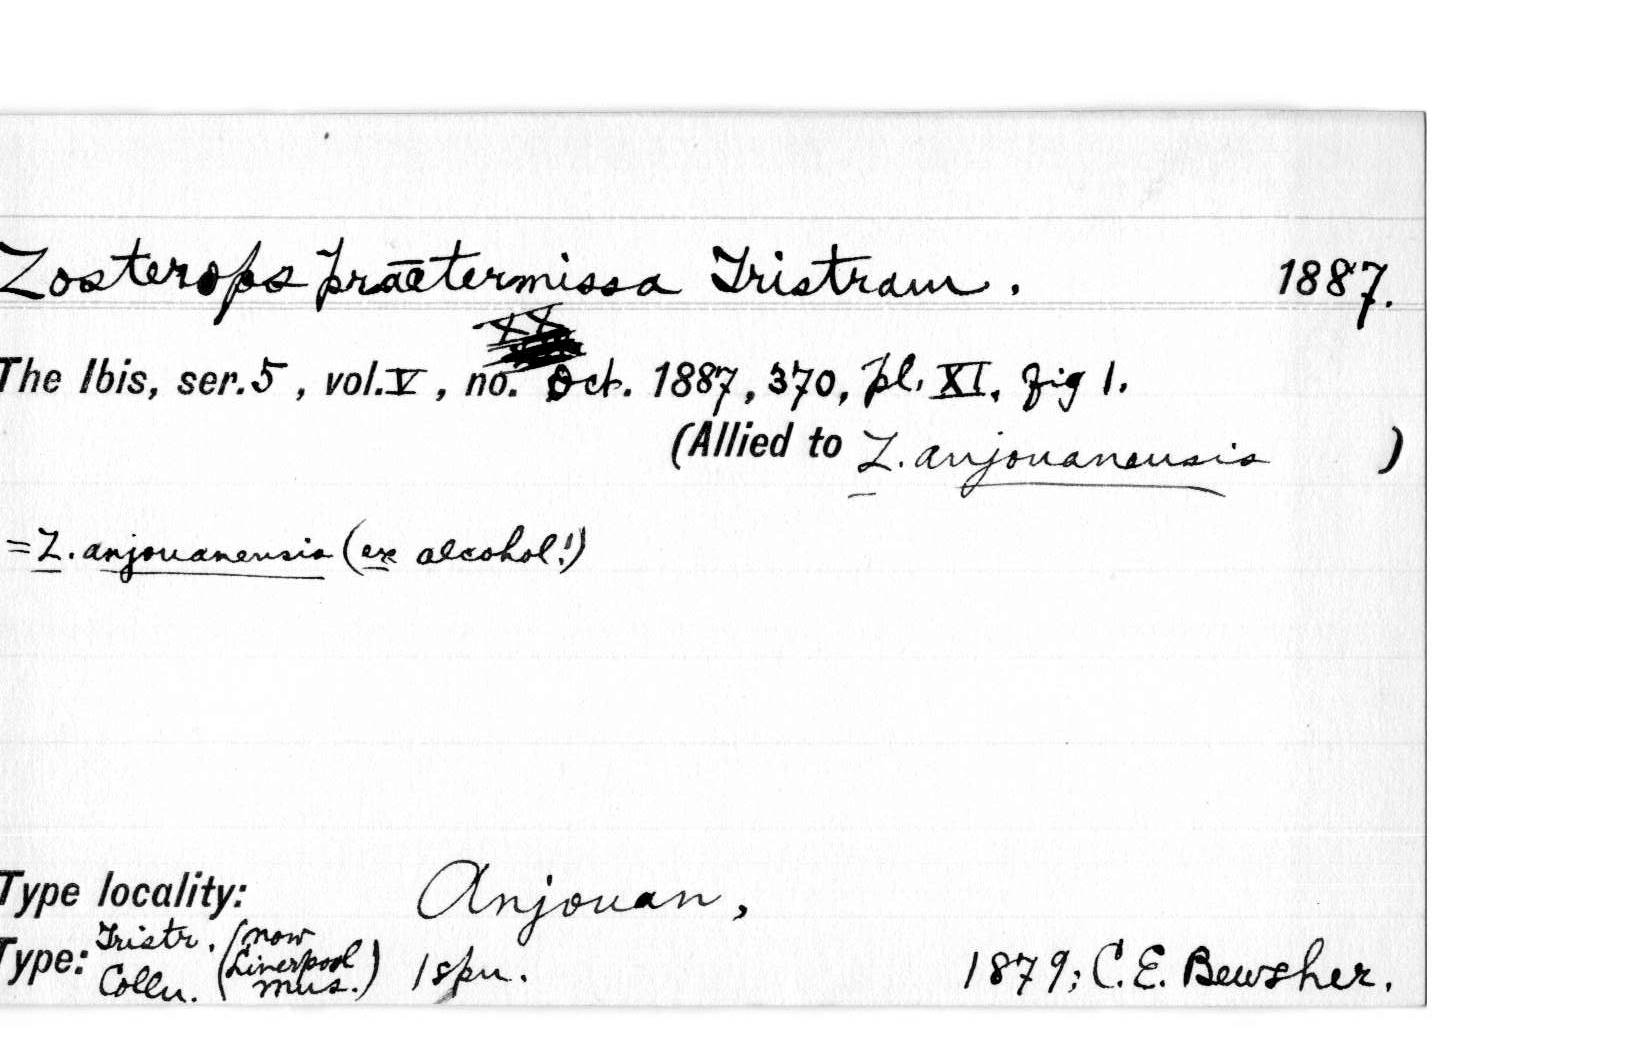 Zosterops praetermissa Tristram. 1887.
The Ibis, ser. 5, vol. V, no. Oct. 1887, 370, pl. XI, fig 1.
(Allied to Z. anjouanensis )
= Z. anjouanensis (ex alcohol!)
Type locality: Anjouan,
Type: Tristr. Colln. (now Liverpool mus.) 1 spn. 1879; C. E. Bewsher.